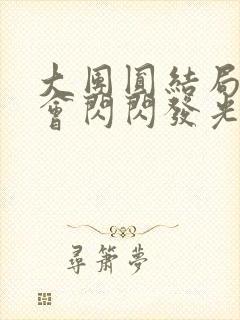 大團圓結局
會閃閃發光
尋簫夢